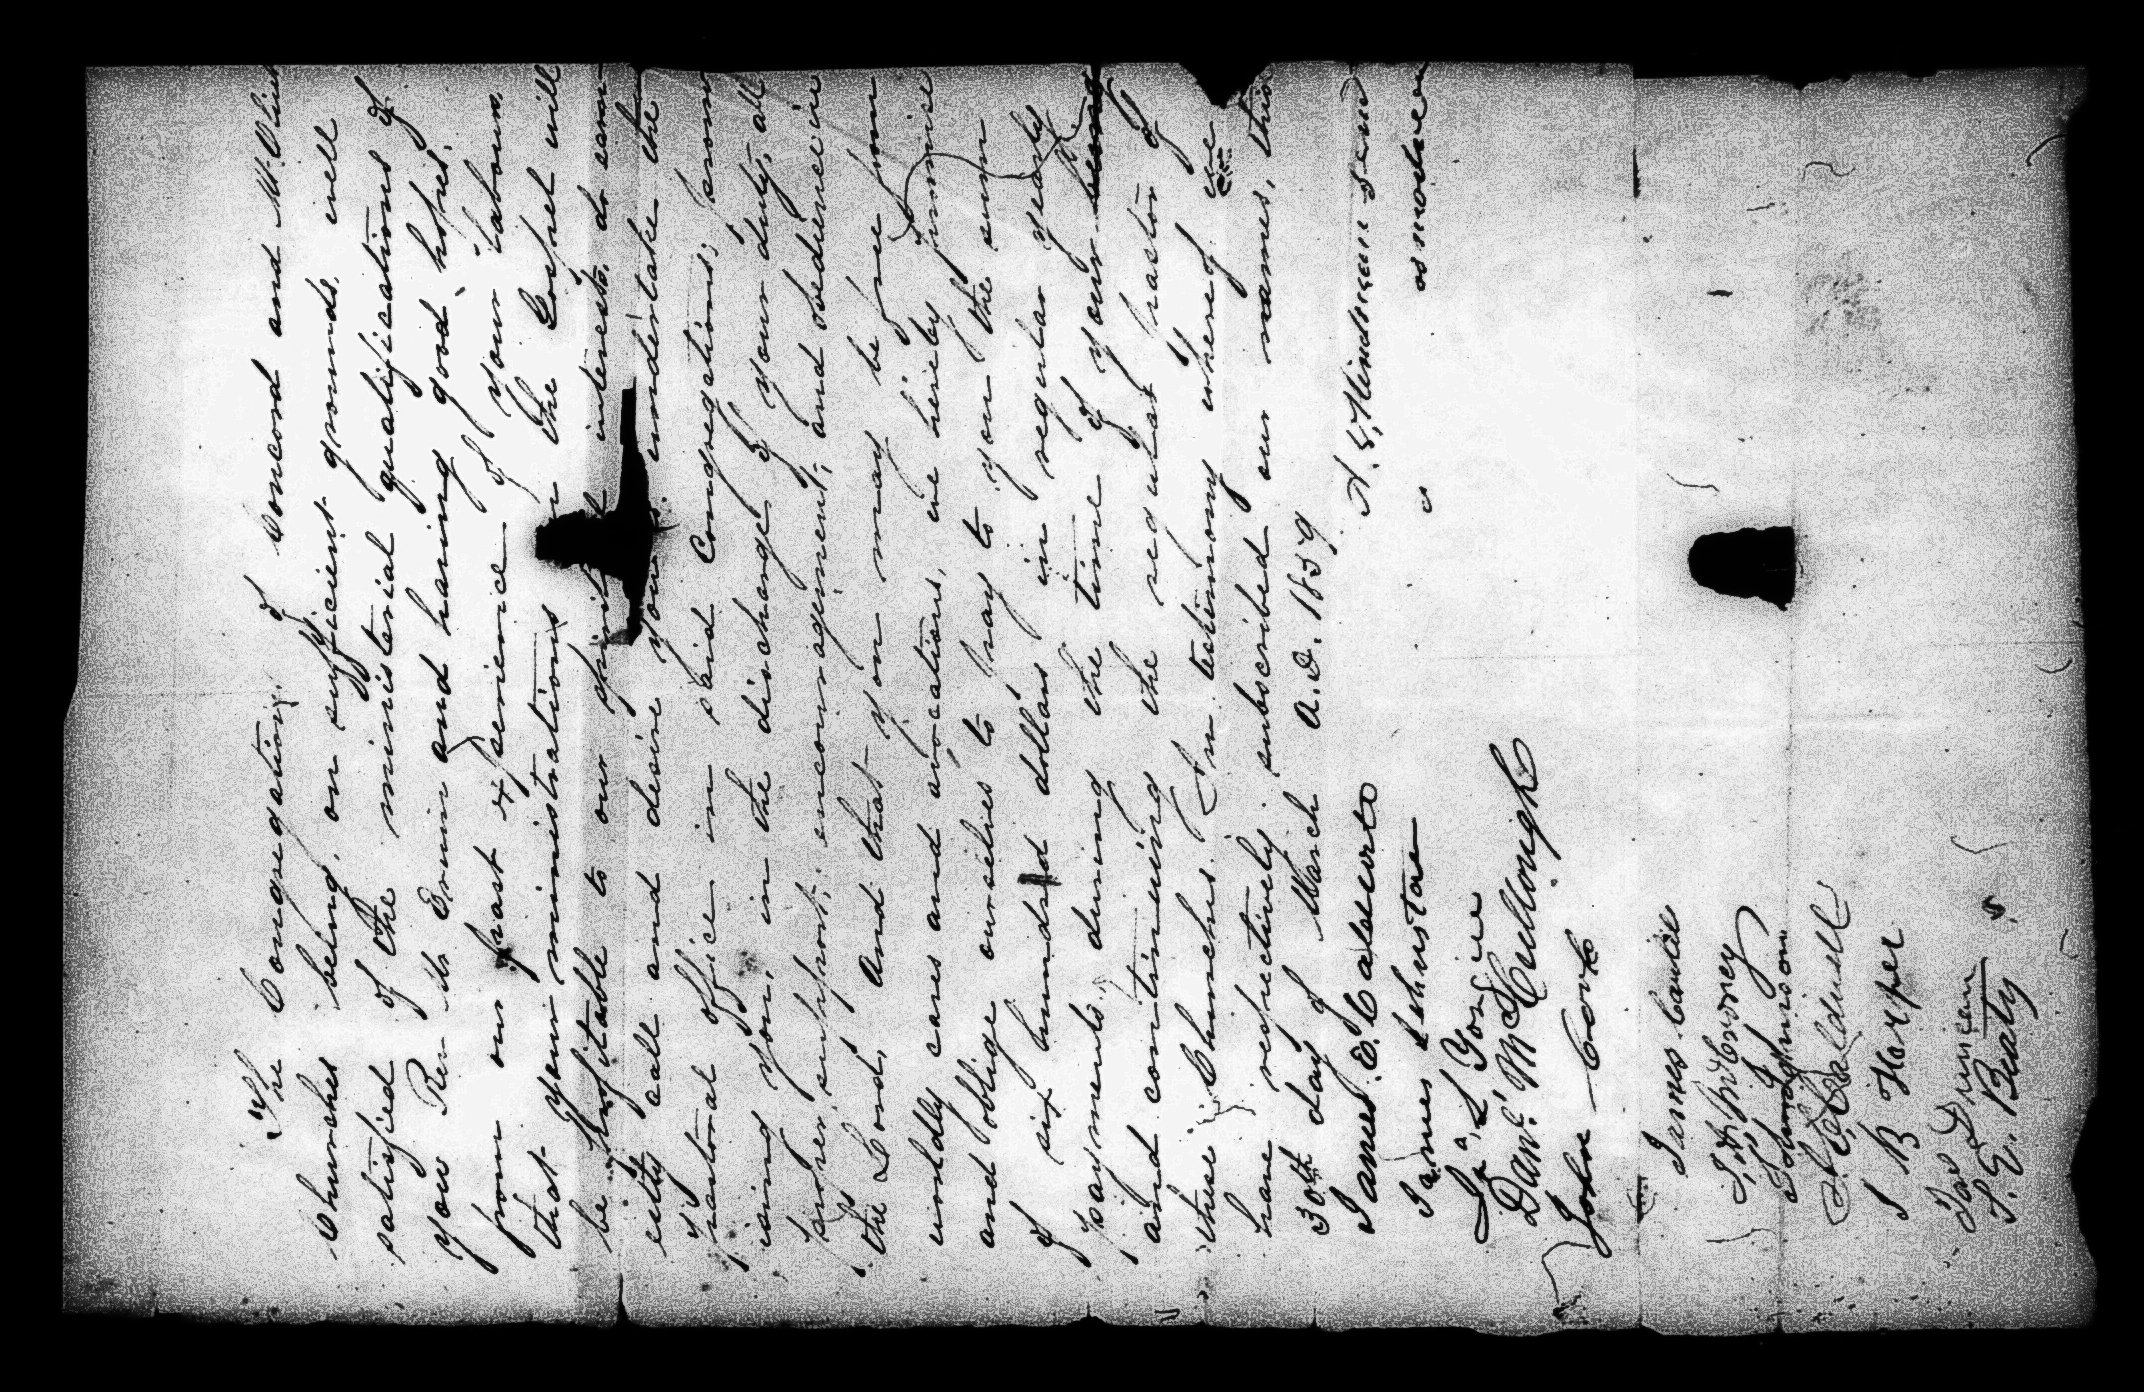 "The Congregations of Concord and Mt. Olivet
Churches being, on sufficient grounds, well
satisfied of the ministerial qualifications of
you Rev W. Erwin and having good hopes
from our past experience of your labours,
that your ministrations in the Gospel will
be profitable to our spiritual interests, do earn-
estly call and desire you undertake the
pastoral office in said Congregations; prom-
ising you, in the discharge of your duty, all
proper support, encouragement, and obedience in
the Lord. And that you may be free from
worldly cares and avocations, we hereby promise
and oblige ourselves to pay to you the sum
of six hundred dollars in regular yearly
payments, during the time of your being
and continuing the regular pastor of
these Churches. In testimony whereof we
have respectively subscribed our names, this
30th day of March A.D. 1859.
James E. Caldwell
James Johnston
Dan'l McCullough
John Cork
A.
as moderator
James
Johnston
Caldwell
J B Harper
Jas Duncan
J. E. Beaty